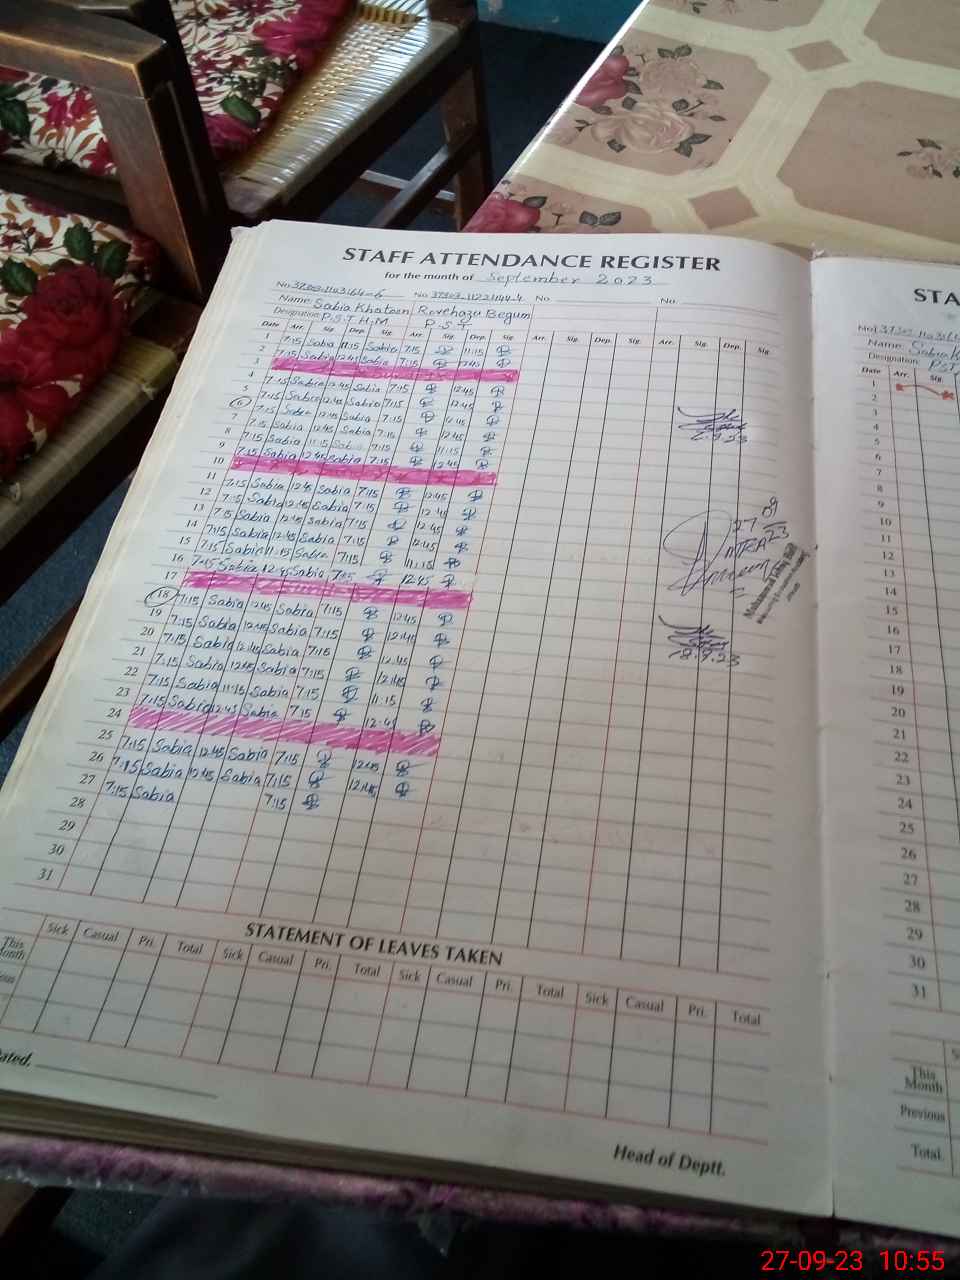 STAFF ATTENDANCE REGISTER
for the month of September 2023
No
No
No
No
Name Sabia Khatoon Rovehazu Begum
Designation P.S.T H.M P.S.T
Date Arr. Sig Dep. Sig. Arr. Sig. Dep. Sig. Arr. Sig. Dep. Sig. Arr. Sig. Dep. Sig.
1 7:15 Sabia 11:15 Sabia 7:15 11:15
2 7:15 Sabia 12:45 Sabia 7:15 12:45
3
4 7:15 Sabia 12:45 Sabia 7:15 12:45
5 7:15 Sabia 12:45 Sabia 7:15 12:45
6 7:15 Sabia 12:45 Sabia 7:15 12:45
7 7:15 Sabia 12:45 Sabia 7:15 12:45
8 7:15 Sabia 11:15 Sabia 7:15 11:15
9 7:15 Sabia 12:45 Sabia 7:15 12:45
10
11 7:15 Sabia 12:45 Sabia 7:15 12:45
12 7:15 Sabia 12:45 Sabia 7:15 12:45
13 7:15 Sabia 12:45 Sabia 7:15 12:45
14 7:15 Sabia 12:45 Sabia 7:15 12:45
15 7:15 Sabia 11:15 Sabia 7:15 11:15
16 7:15 Sabia 12:45 Sabia 7:15 12:45
17
18 7:15 Sabia 12:45 Sabia 7:15 12:45
19 7:15 Sabia 12:45 Sabia 7:15 12:45
20 7:15 Sabia 12:45 Sabia 7:15 12:45
21 7:15 Sabia 12:45 Sabia 7:15 12:45
22 7:15 Sabia 11:15 Sabia 7:15 11:15
23 7:15 Sabia 12:45 Sabia 7:15 12:45
24
25 7:15 Sabia 12:45 Sabia 7:15 12:45
26 7:15 Sabia 12:45 Sabia 7:15 12:45
27 7:15 Sabia 7:15
28
29
30
31
27 09
23
STATEMENT OF LEAVES TAKEN
Sick Casual Pri. Total Sick Casual Pri. Total Sick Casual Pri. Total Sick Casual Pri. Total
This
Month
Head of Deptt.
STA
No
Name
Designation PST
Date Arr. Sig.
1
2
3
4
5
6
7
8
9
10
11
12
13
14
15
16
17
18
19
20
21
22
23
24
25
26
27
28
29
30
31
This
Month
Previous
Total
27-09-23 10:55